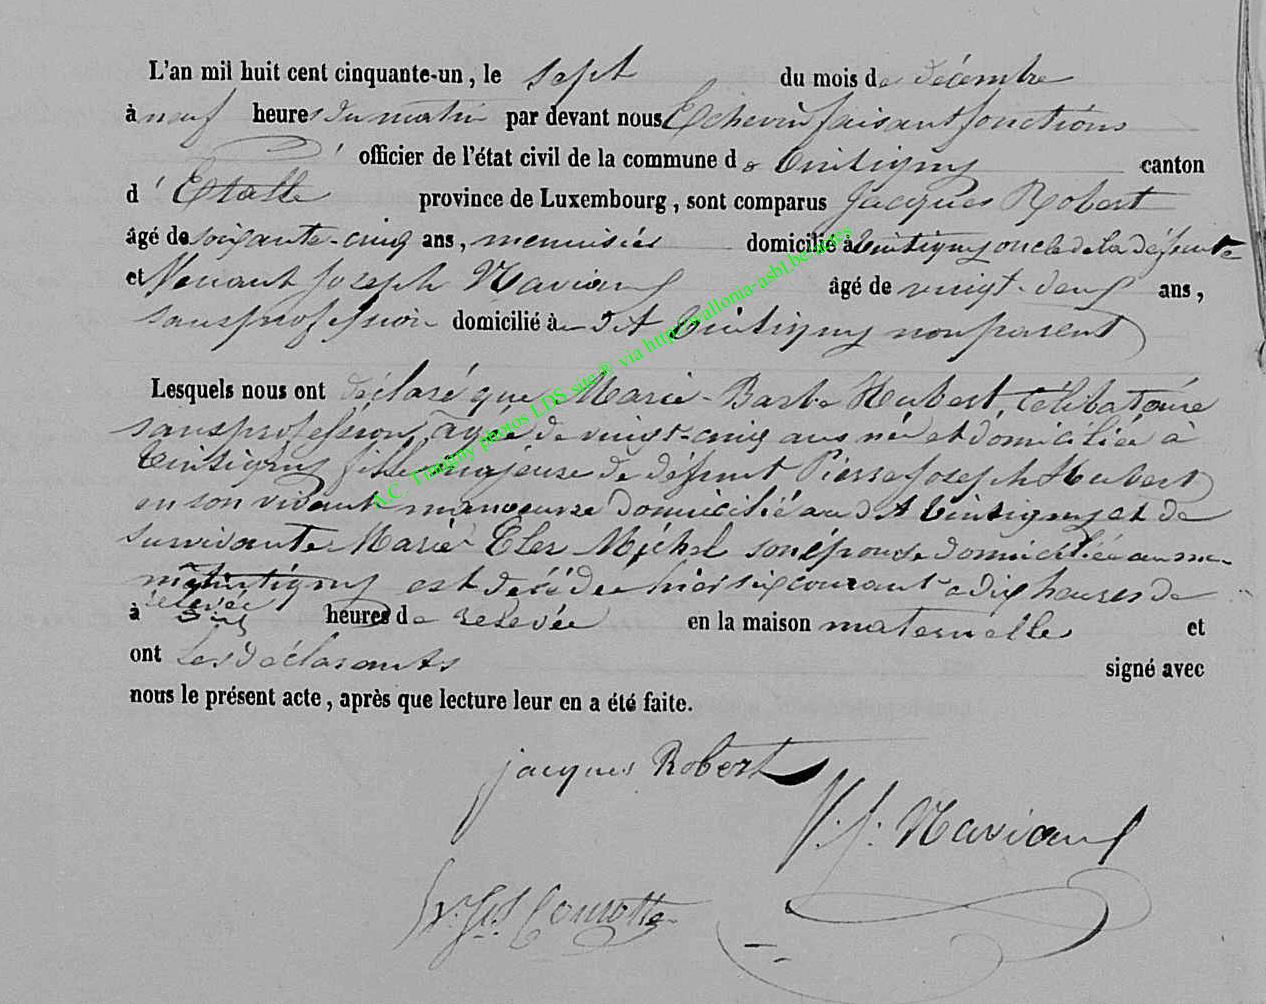 L'an mil huit cent cinquante-un, le sept du mois de décembre
à neuf heures du matin par devant nous Echevin faisant fonctions
officier de l'état civil de la commune de Tintigny canton
d'Etalle province de Luxembourg, sont comparus Jacques Robert
âgé de soixante-cinq ans, menuisier domicilié à Tintigny oncle de la défunte
et Venant Joseph Naviaux âgé de vingt-deux ans,
sans profession domicilié au dit Tintigny non parent
Lesquels nous ont déclaré que Marie-Barbe Hubert, célibataire
sans profession, agée de vingt-cinq ans née et domiciliée à
Tintigny fille majeure de défunt Pierre Joseph Hubert
en son vivant manoeuvre domicilié au dit Tintigny et de
survivante Marie Michel son épouse domiciliée au me-
me Tintigny est décédée hier six courant a dix heures de
relevée
à heures de relevée en la maison maternelle et
ont les déclarants signé avec
nous le présent acte, après que lecture leur en a été faite.
jacques Robert
V. J. Naviaux
A.C. Tintigny photos LDS site @ via http://wallonia-asbl.be/actes